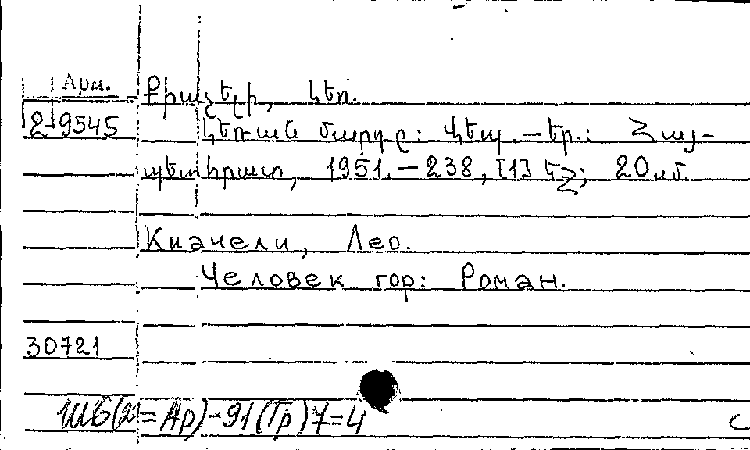 Арм.
Քիաչելի, Լեո.
2-9545
Լեռան մարդը: Վեպ. – Եր.: Հայ-
պետհրատ, 1951. – 238, [1] էջ; 20 սմ.
Киачели, Лео.
Человек гор: Роман.
30721
Ш6(2=Ар)-91(Гр)7=4
с